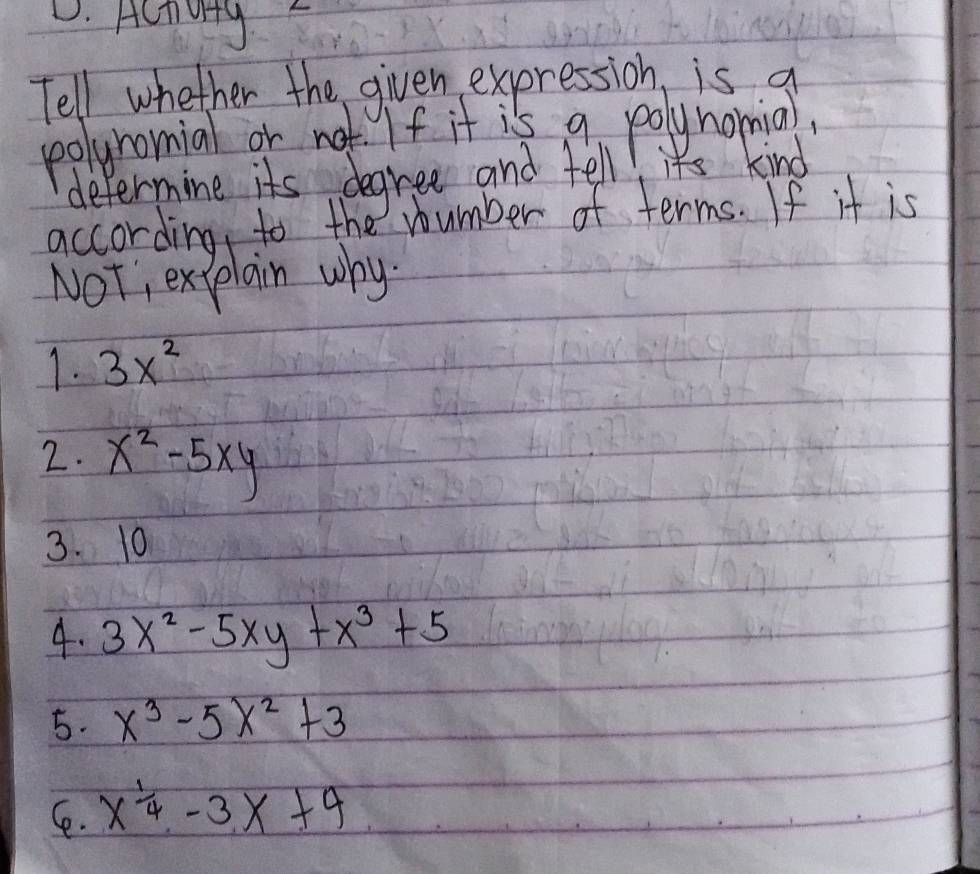 D. Activity 2
Tell whether the given expression is a
polynomial or not. If it is a polynomial,
determine its degree and tell its kind
according to the number of terms. If it is
NOT, explain why.
1. 3x²
2. x² - 5xy
3. 10
4. 3x² - 5xy + x³ + 5
5. x³ - 5x² + 3
6. x^¼ - 3x + 9